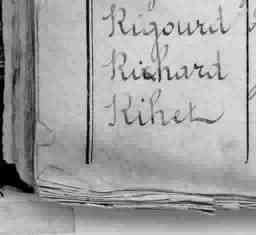 Rigourd
Richard
Rihet